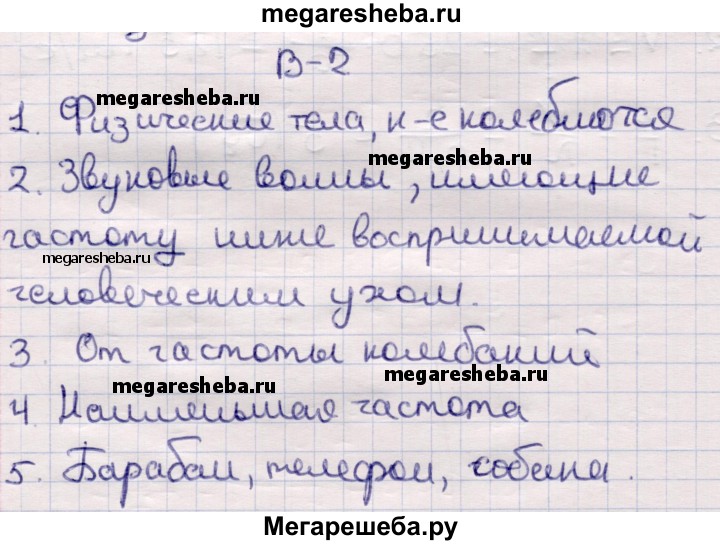 megaresheba.ru
В-2
megaresheba.ru
1. Физические тела, к-е колеблются
megaresheba.ru
2. Звуковые волны, имеющие
частоту ниже воспринимаемой
megaresheba.ru
человеческим ухом.
3. От частоты колебаний
megaresheba.ru
megaresheba.ru
4 Наименьшая частота
5. Барабан, телефон, собака.
Мегарешеба.ру